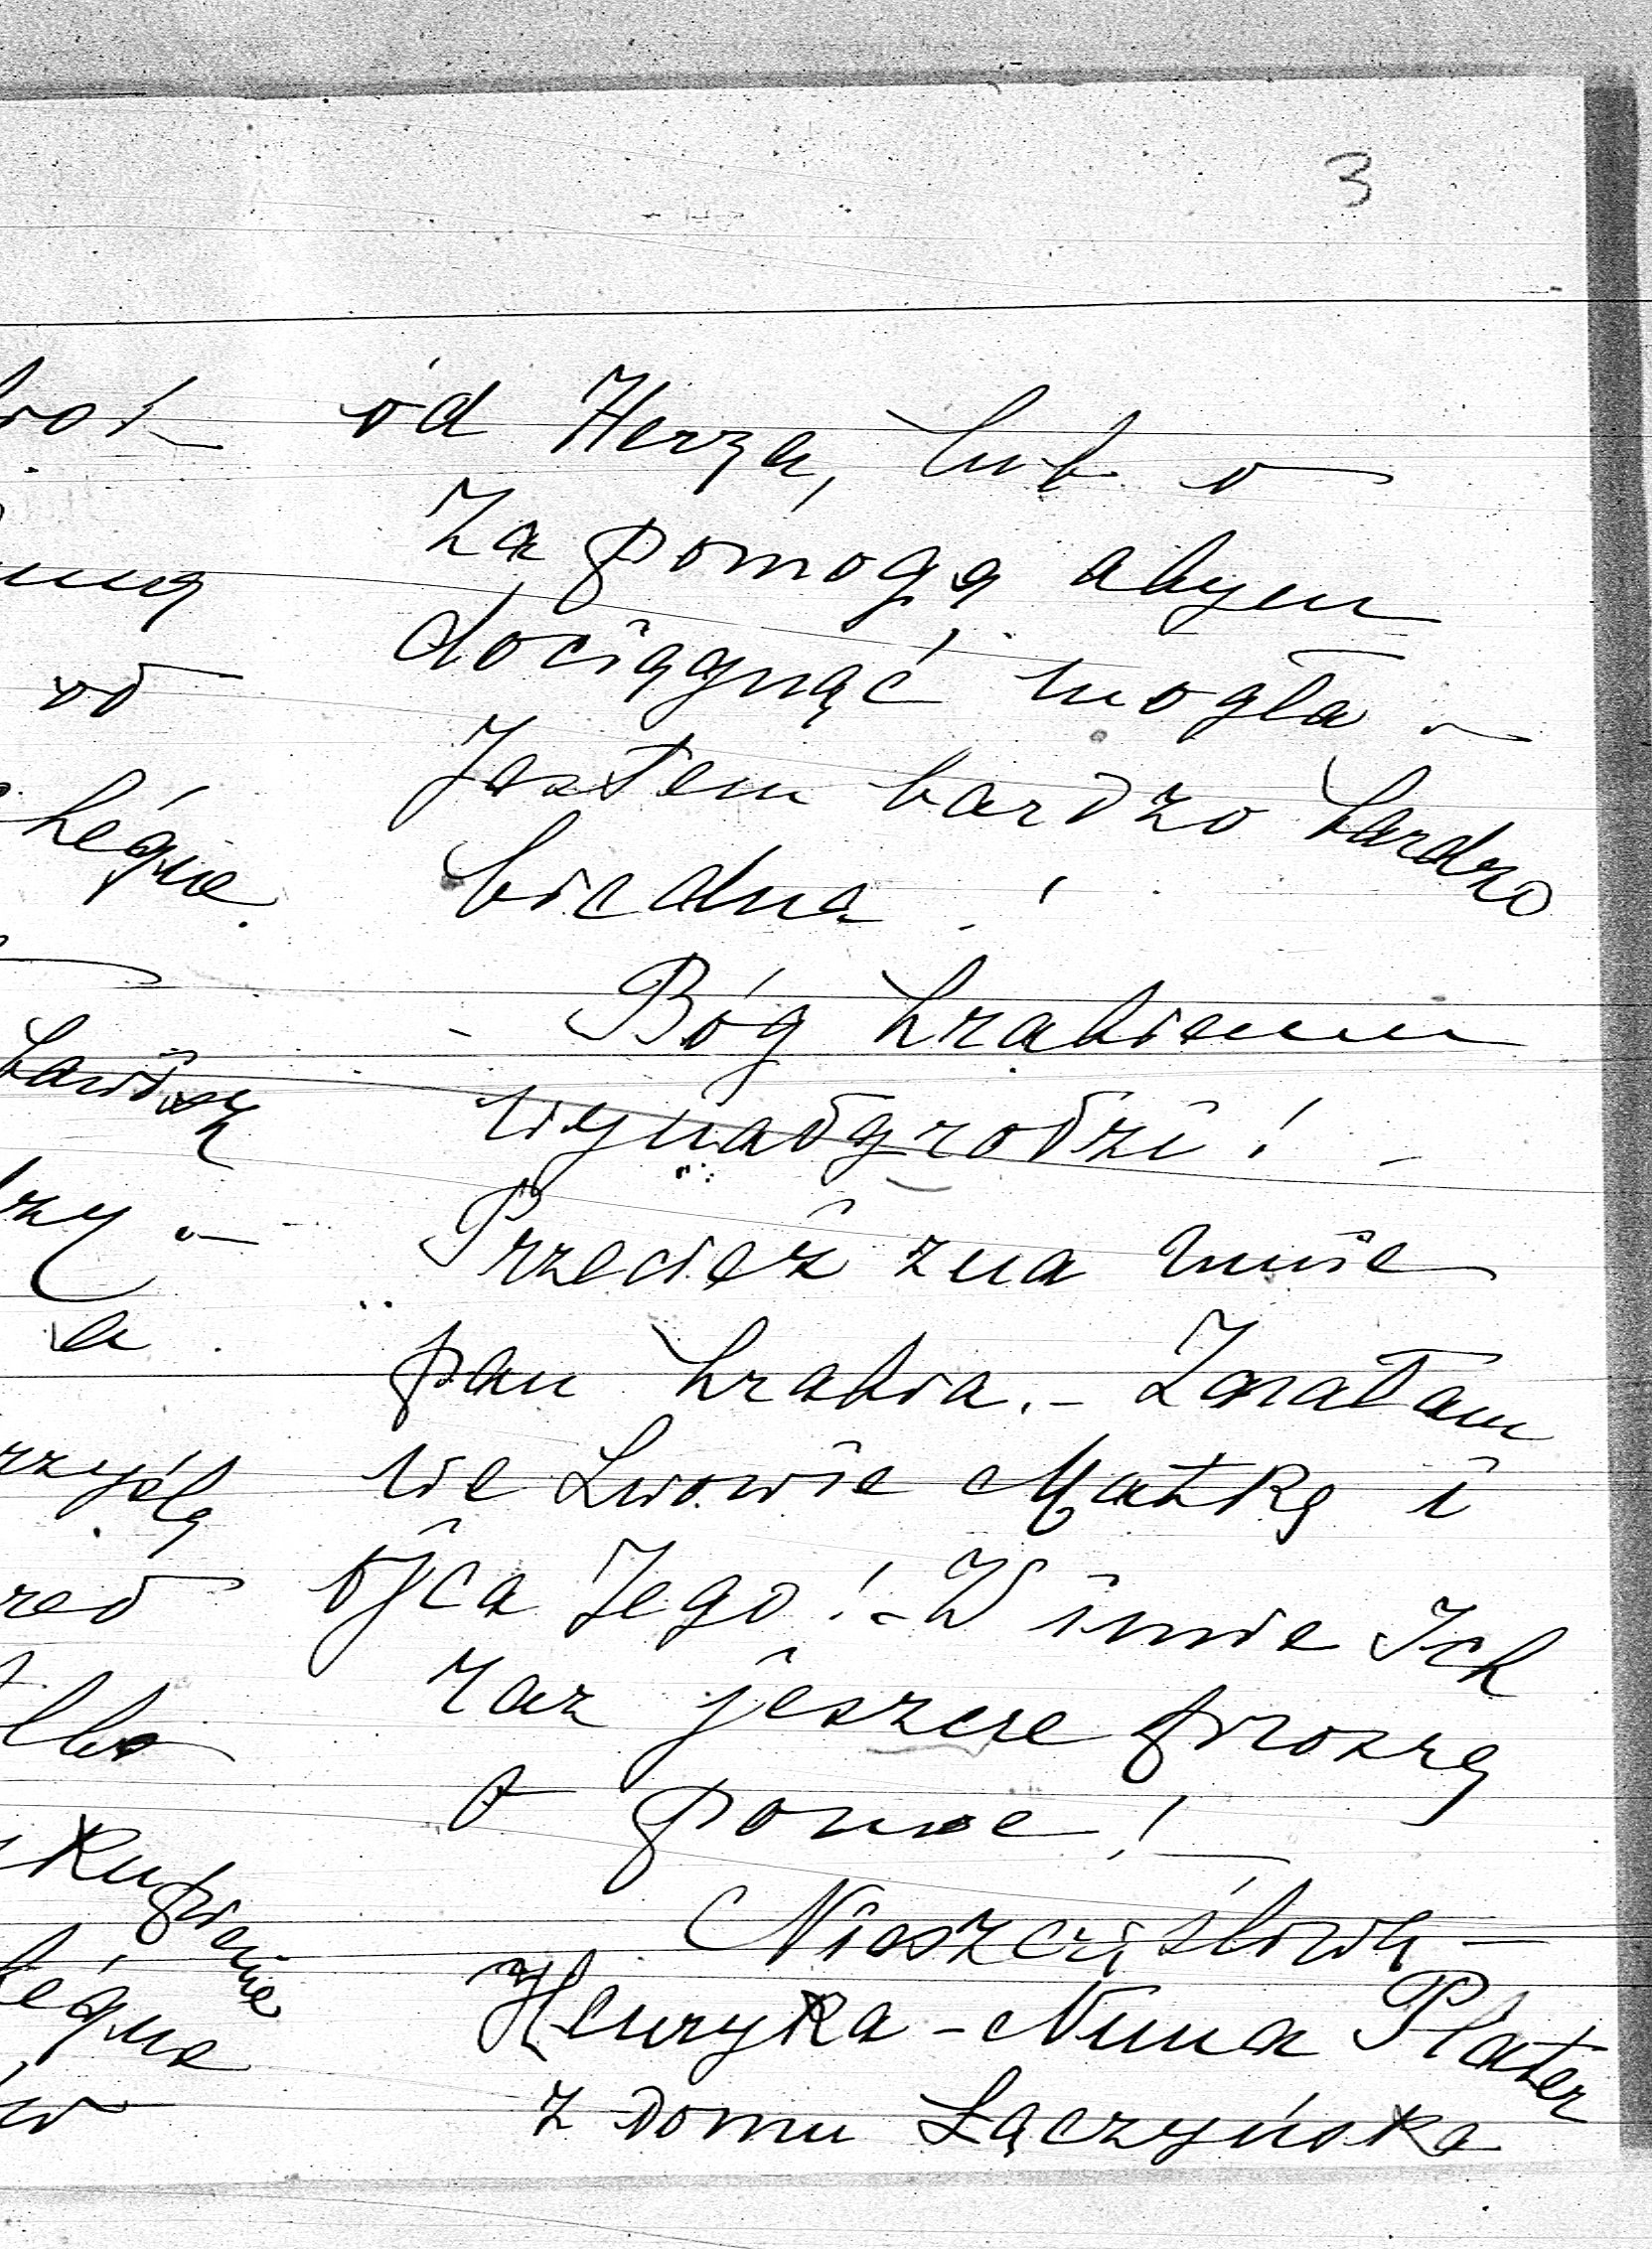 3
od Herza, lub o
Zapomogę abym
dociągnąć mogła -
Jestem bardzo bardzo
biedna !
- Bóg hrabiemu
wynadgrodzi! -
Przecież zna mnie
pan hrabia. - Znałam
we Lwowie Matkę i
Ojca Jego! - W imie Ich
raz jeszcze proszę
o pomoc! -
Nieszczęśliwa -
Henryka - Nuna Plater
z domu Łączyńska
od
hégne
rzy -
a
rzyślą
red
albo
kupienie
légne